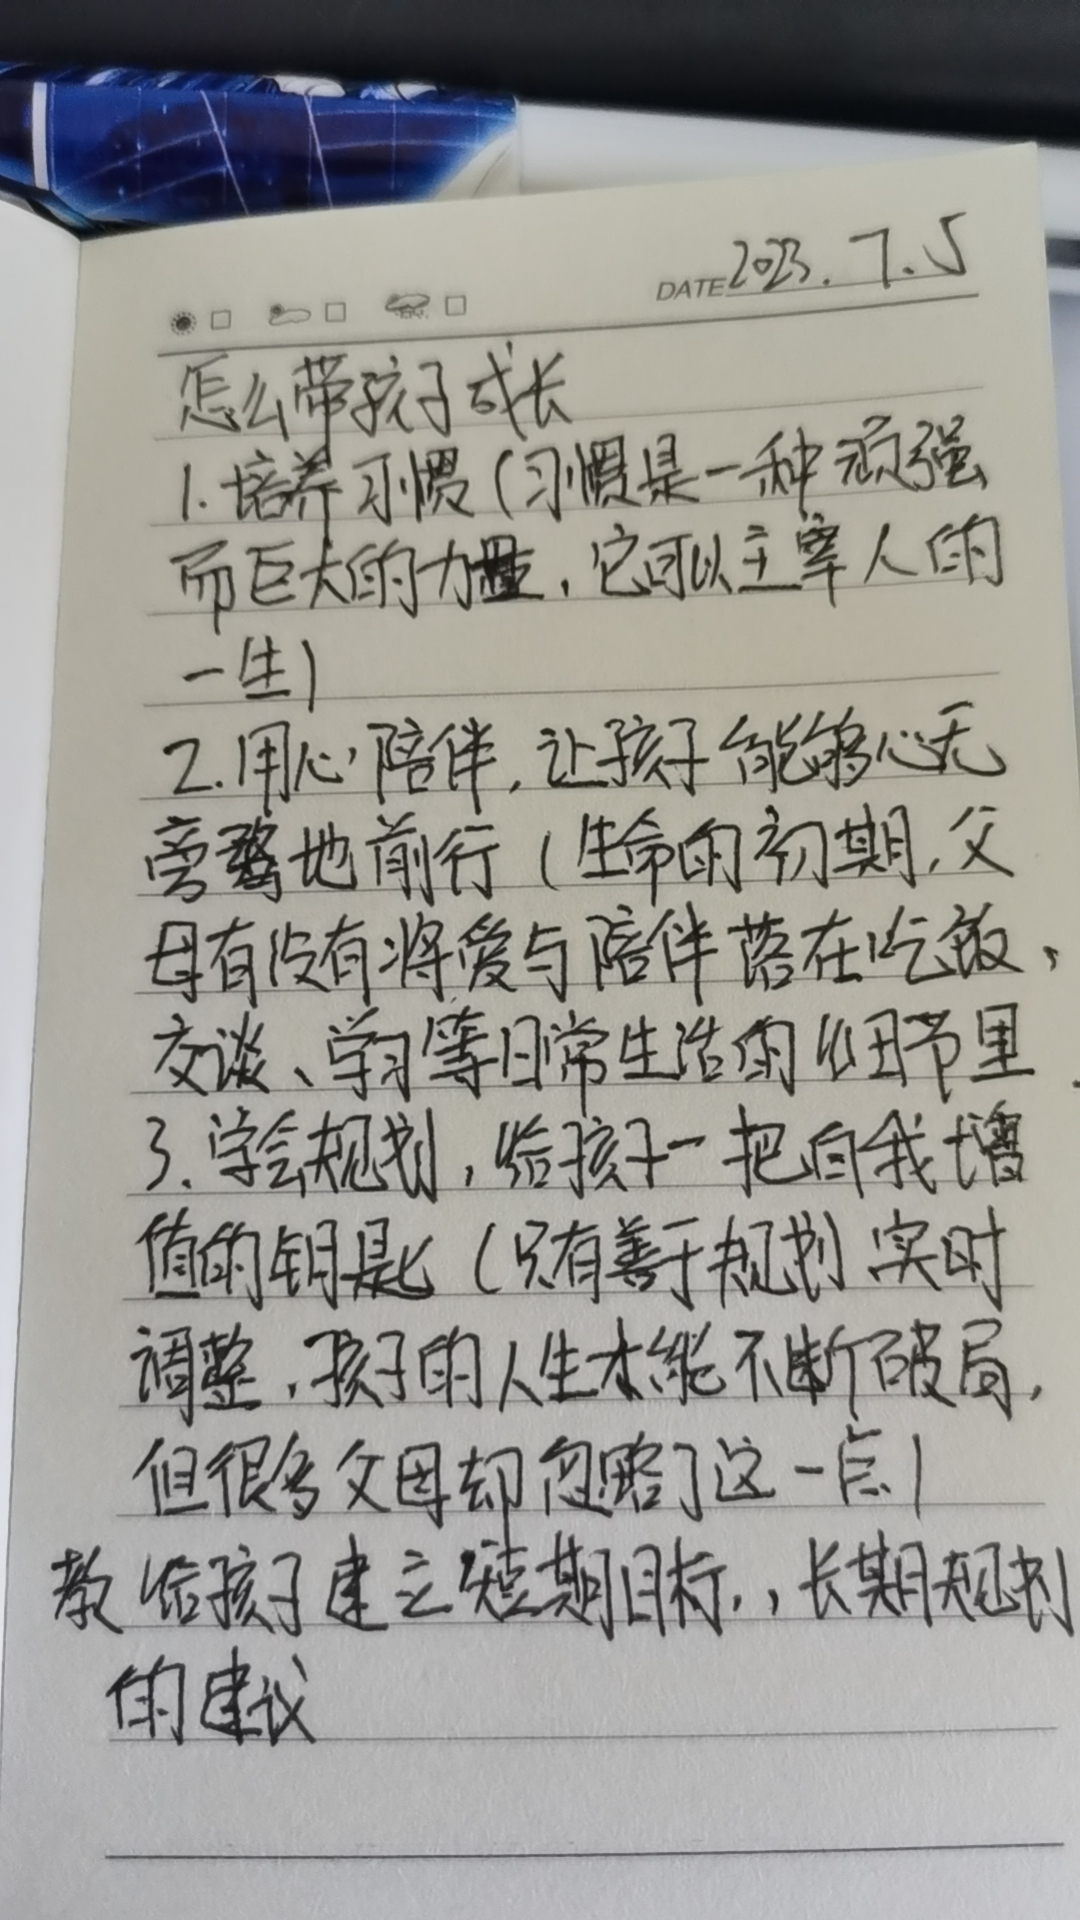 DATE 2023.7.5
怎么带孩子成长
1.培养习惯(习惯是一种顽强
而巨大的力量,它可以主宰人的
一生)
2.用心陪伴,让孩子能够心无
旁骛地前行(生命的初期,父
母有没有将爱与陪伴落在吃饭、
交谈、学习等日常生活的细节里.
3.学会规划,给孩子一把自我增
值的钥匙(只有善于规划 实时
调整,孩子的人生才能不断破局,
但很多父母却忽略了这一点)
教给孩子建立短期目标,,长期规划
的建议